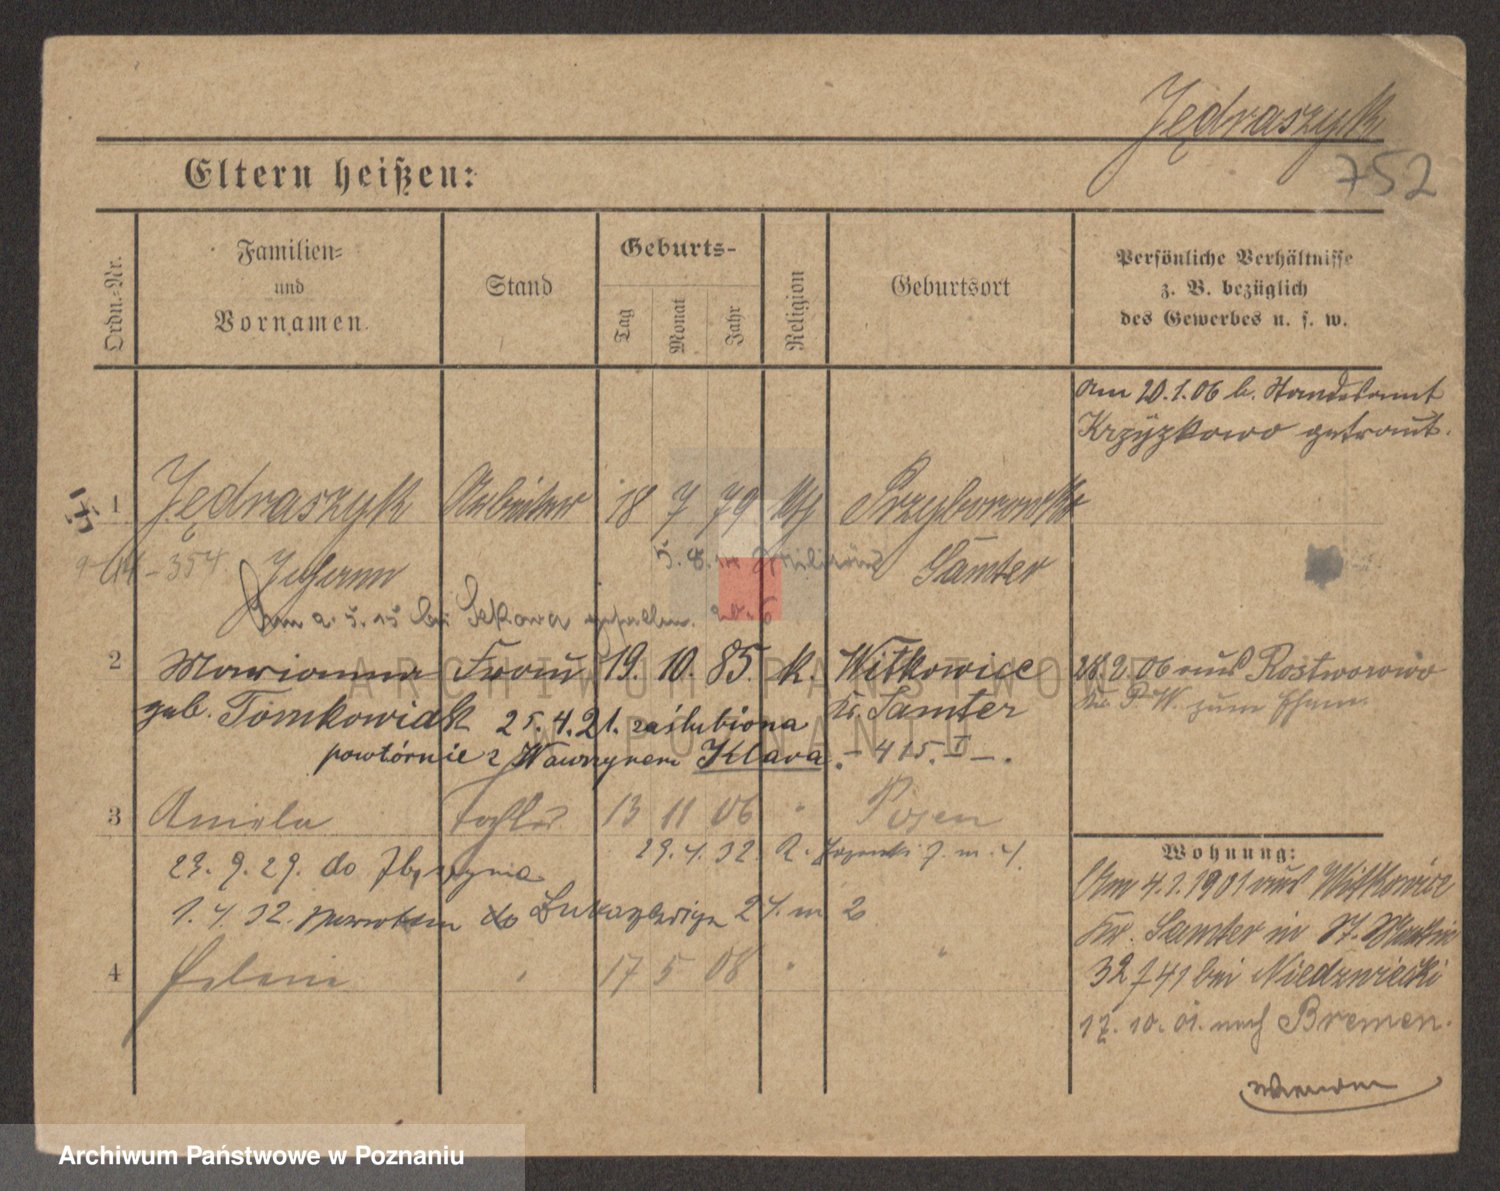 Jędraszyk
752
Eltern heißen:
Ordn.-Nr.
Familien-
und
Vornamen.
Stand
Geburts-
Tag
Monat
Jahr
Religion
Geburtsort
Persönliche Verhältnisse
z. B. bezüglich
des Gewerbes u. s. w.
am 20.1.06 b. Standesamt
Krzyzkowo getraut.
1 Jędraszyk Arbeiter 18 7 79 kth Przyborowko
354 Johann 5.8.14 Militär Samter
Am 2.5.15 bei Sekowa gefallen.
2 Marianna Frau 19. 10. 85. k. Witkowice
geb. Tomkowiak Kr. Samter
28.2.06 aus Rostworowo
Kr. P.W. zum Ehem.
25.4.21. zaślubiona
powtórnie z Wawrzynem Klava. - 415. I - .
3 Aniela Tochter 13 11 06 " Posen
29.9.29. do Zbąszynia
29.4.32.
1.4.32. powrotem do 24. m 2
4 Helene " 17 5 08 " "
Wohnung:
Am 4.1.1901 aus Witkowice
Kr. Samter in St. Martin
32 bei Niedzwiecki
12.10.01. nach Bremen.
ARCHIWUM PAŃSTWOWE
W POZNANIU
Archiwum Państwowe w Poznaniu